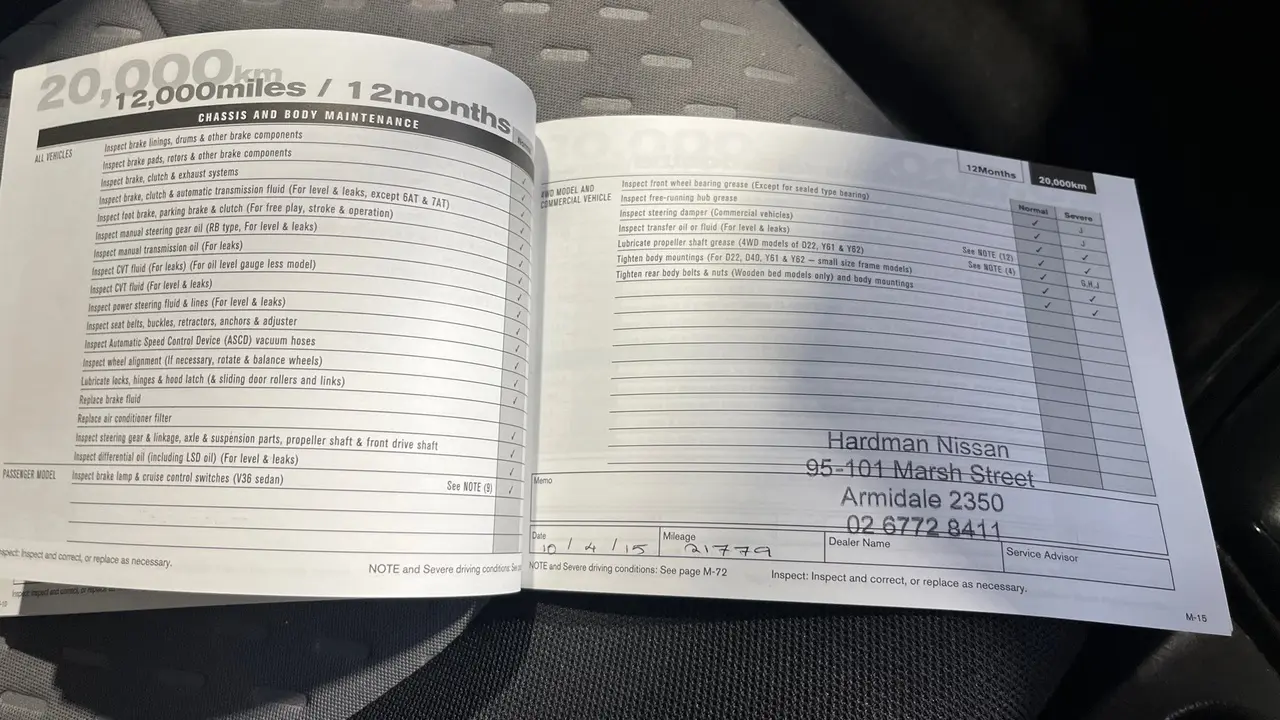 20,000km
12,000miles / 12months
CHASSIS AND BODY MAINTENANCE
ALL VEHICLES
Inspect brake linings, drums & other brake components
Inspect brake pads, rotors & other brake components
Inspect brake, clutch & exhaust systems
Inspect brake, clutch & automatic transmission fluid (For level & leaks, except 6AT & 7AT)
Inspect foot brake, parking brake & clutch (For free play, stroke & operation)
Inspect manual steering gear oil (RB type, For level & leaks)
Inspect manual transmission oil (For leaks)
Inspect CVT fluid (For leaks) (For oil level gauge less model)
Inspect CVT fluid (For level & leaks)
Inspect power steering fluid & lines (For level & leaks)
Inspect seat belts, buckles, retractors, anchors & adjuster
Inspect Automatic Speed Control Device (ASCD) vacuum hoses
Inspect wheel alignment (If necessary, rotate & balance wheels)
Lubricate locks, hinges & hood latch (& sliding door rollers and links)
Replace brake fluid
Replace air conditioner filter
Inspect steering gear & linkage, axle & suspension parts, propeller shaft & front drive shaft
Inspect differential oil (including LSD oil) (For level & leaks)
PASSENGER MODEL Inspect brake lamp & cruise control switches (V36 sedan) See NOTE (9) ✓
Inspect: Inspect and correct, or replace as necessary.
NOTE and Severe driving conditions:
12Months 20,000km
Normal Severe
4WD MODEL AND
COMMERCIAL VEHICLE
Inspect front wheel bearing grease (Except for sealed type bearing) ✓ J
Inspect free-running hub grease ✓ J
Inspect steering damper (Commercial vehicles) ✓ ✓
Inspect transfer oil or fluid (For level & leaks) ✓ ✓
Lubricate propeller shaft grease (4WD models of D22, Y61 & Y62) See NOTE (12) ✓ G,H,J
Tighten body mountings (For D22, D40, Y61 & Y62 – small size frame models) See NOTE (4) ✓ ✓
Tighten rear body bolts & nuts (Wooden bed models only) and body mountings ✓ ✓
Hardman Nissan
95-101 Marsh Street
Armidale 2350
02 6772 8411
Memo
Date 10/4/15 Mileage 21779 Dealer Name Service Advisor
NOTE and Severe driving conditions: See page M-72 Inspect: Inspect and correct, or replace as necessary.
M-15